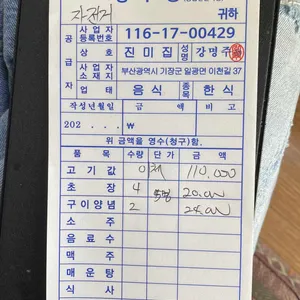 귀하
공급자
사업자등록번호 116-17-00429
상호 진미집 성명 강명주
사업장소재지 부산광역시 기장군 일광면 이천길 37
업태 음식 종목 한식
작성년월일 금액 비고
202 . . . ₩
위 금액을 영수(청구)함.
품목 수량 단가 금액
고기값 110,000
초장 4 20,000
구이양념 2 24,000
소주
음료수
맥주
매운탕
식사